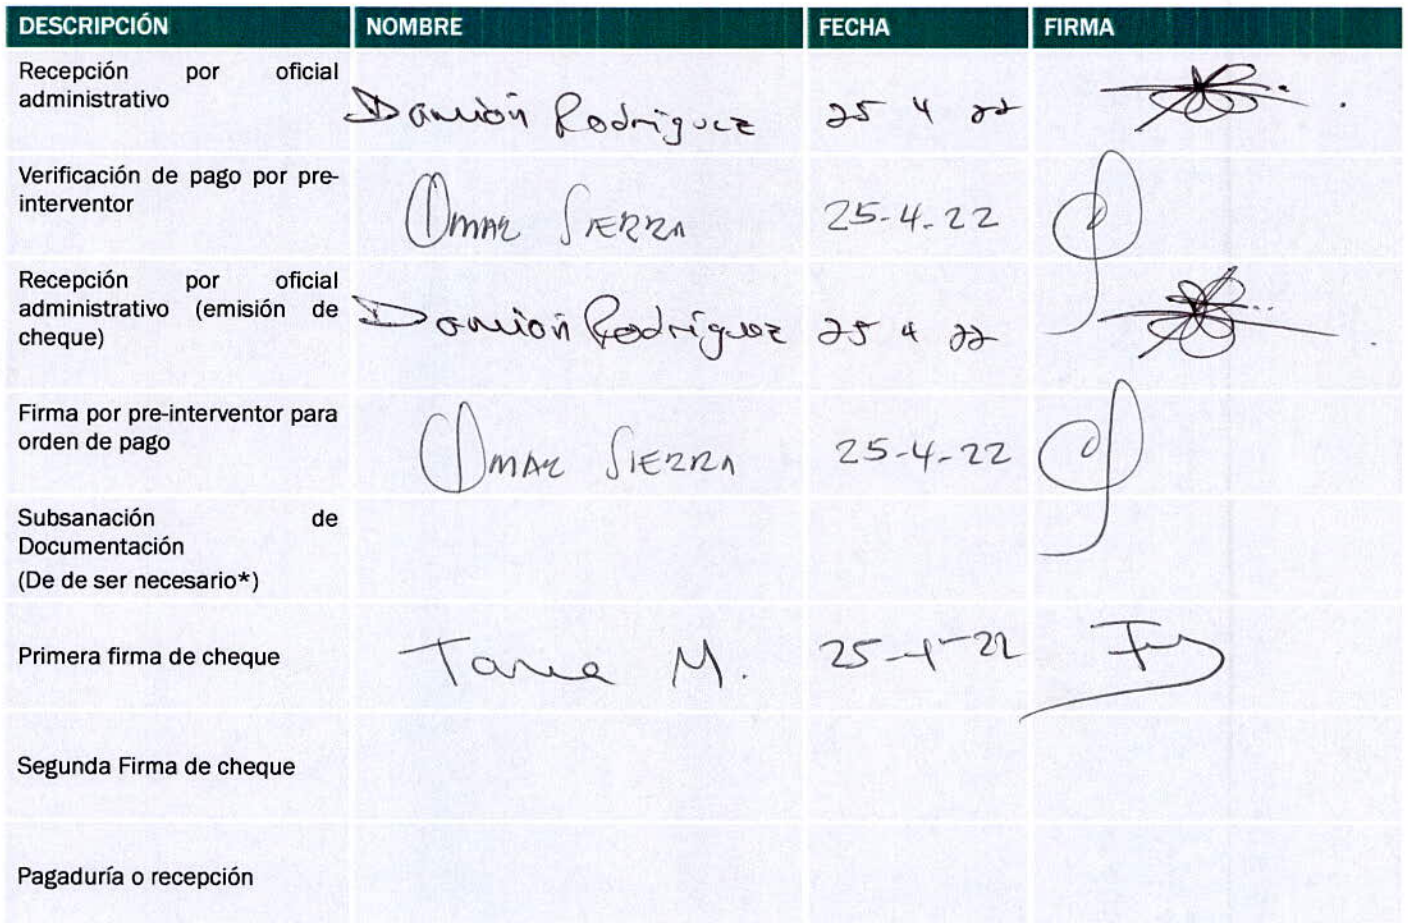 DESCRIPCIÓN NOMBRE FECHA FIRMA
Recepción por oficial
administrativo
Damión Rodriguez 25 4 22
Verificación de pago por pre-
interventor
Omar Sierra 25-4-22
Recepción por oficial
administrativo (emisión de
cheque)
Damión Rodriguez 25 4 22
Firma por pre-interventor para
orden de pago
Omar Sierra 25-4-22
Subsanación de
Documentación
(De de ser necesario*)
Primera firma de cheque Tania M. 25-4-22
Segunda Firma de cheque
Pagaduría o recepción